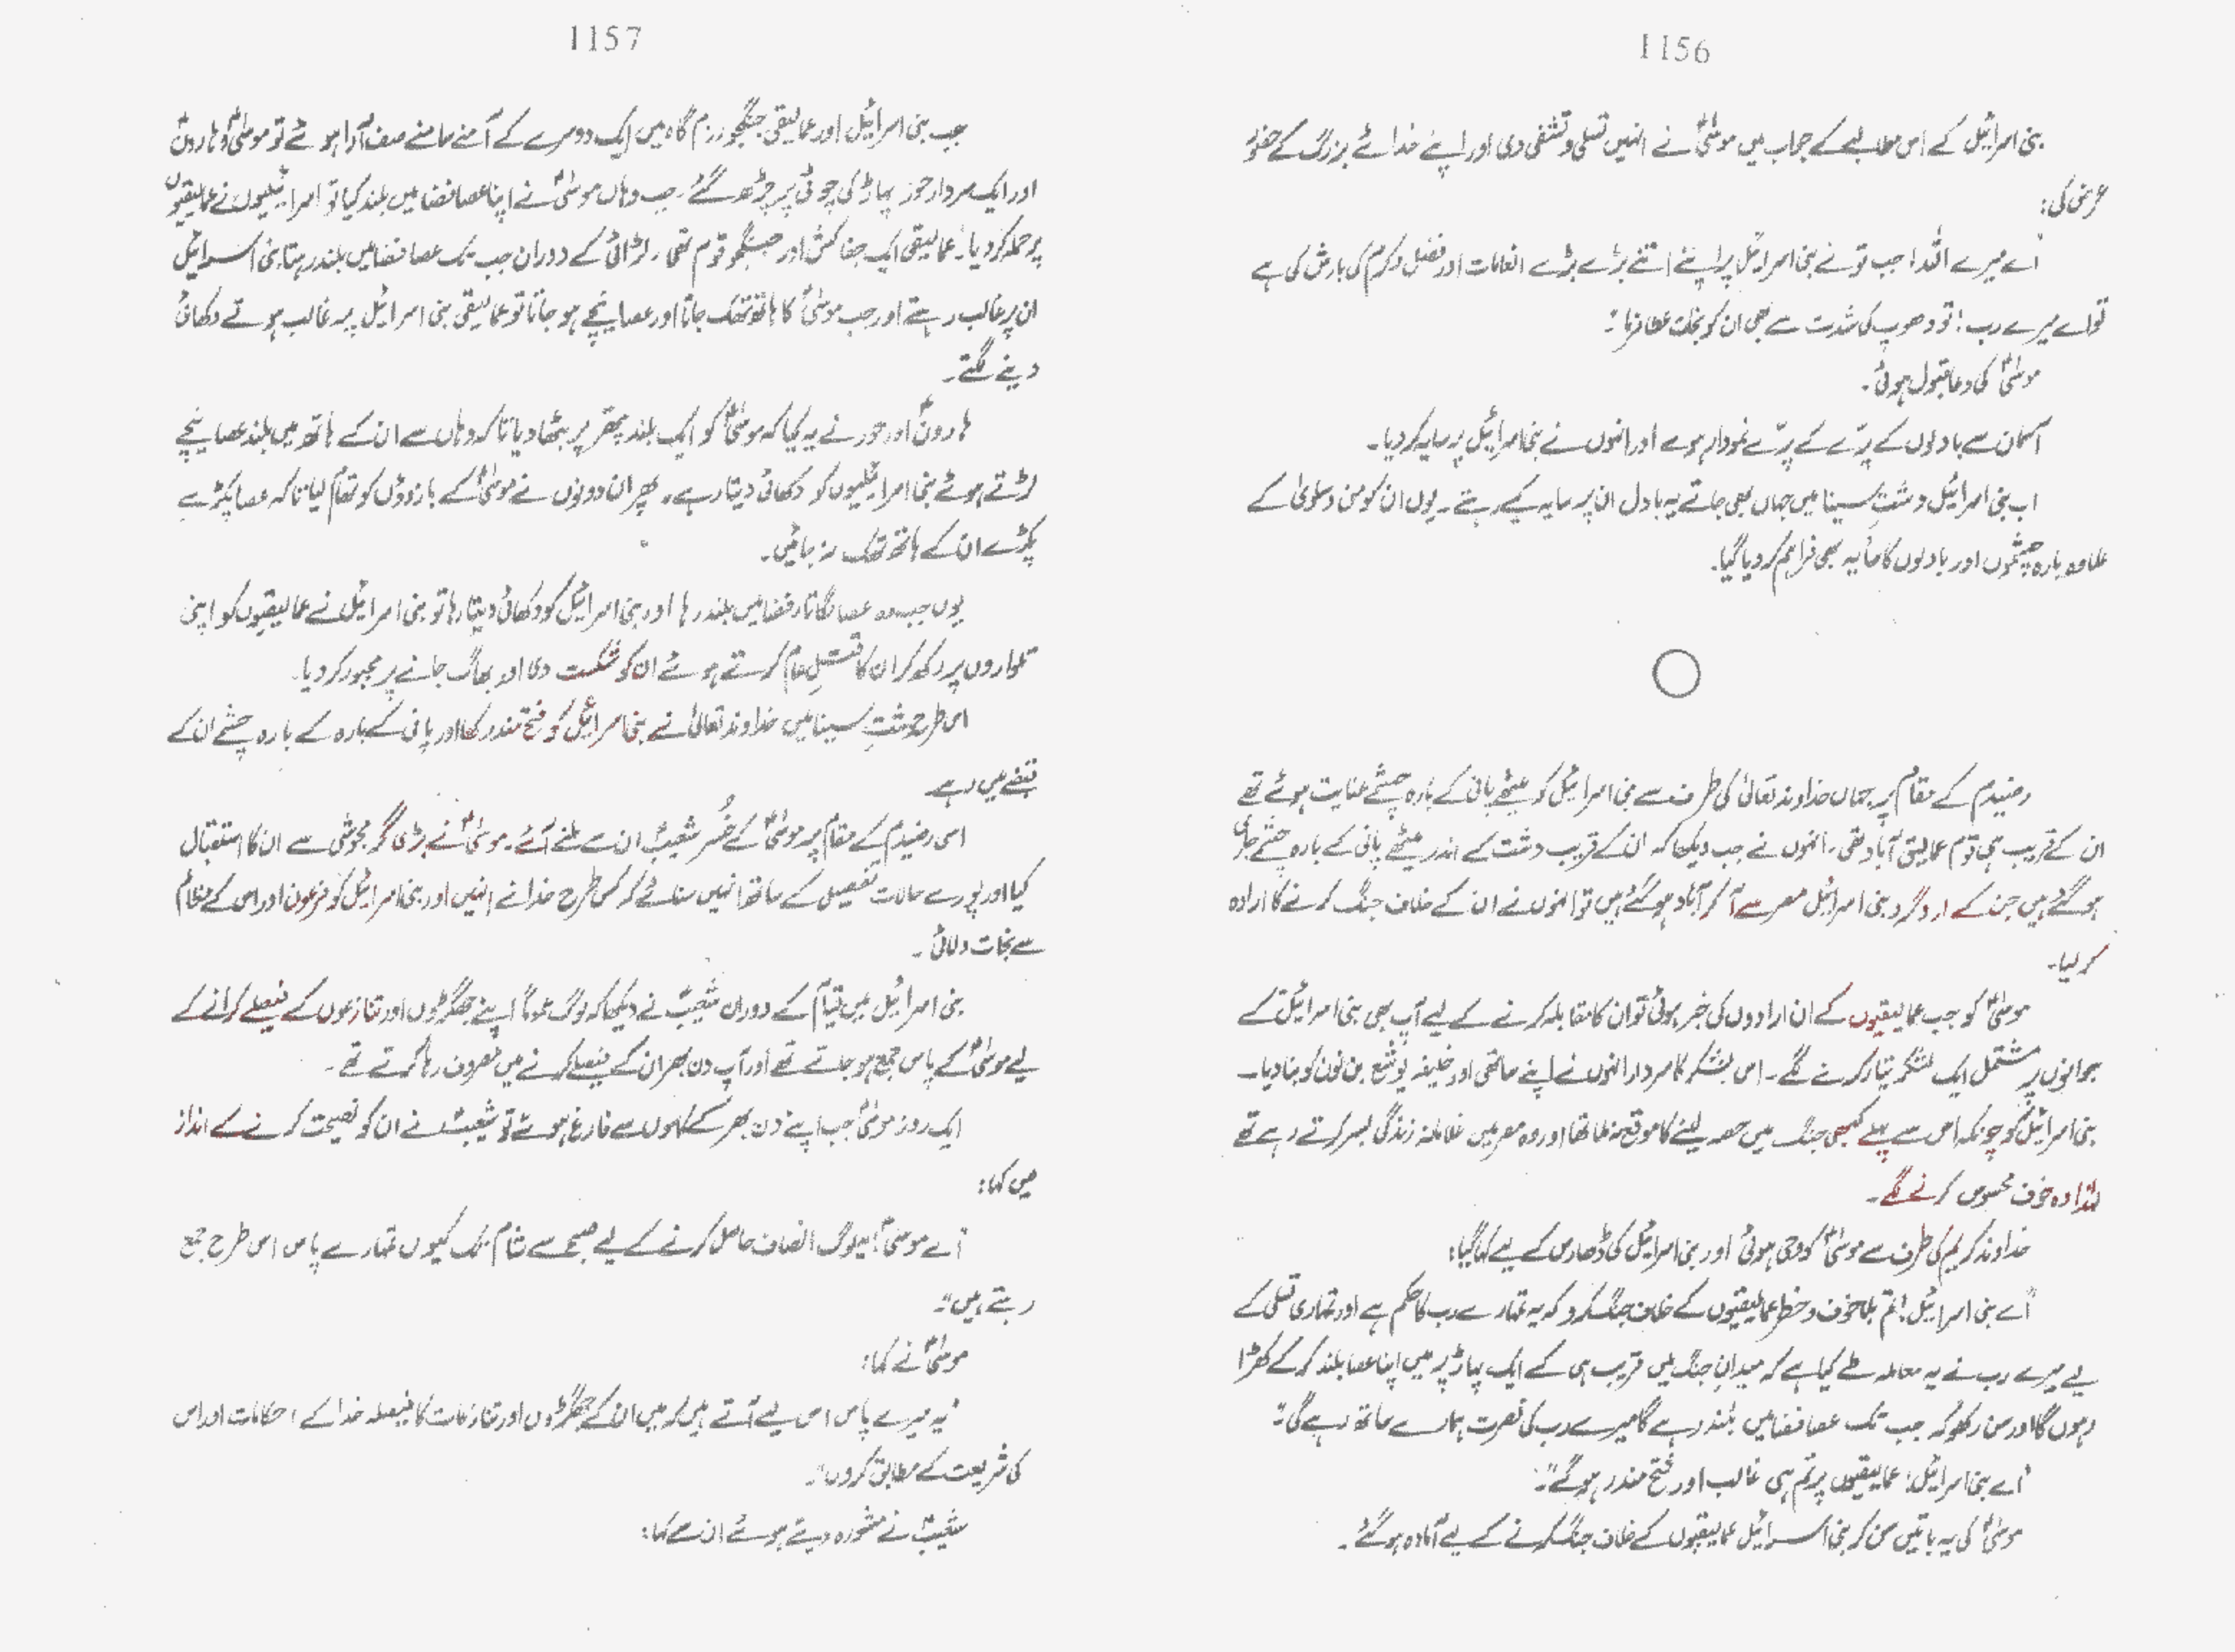 1156
بنی اسرائیل کے اس مطالبے کے جواب میں موسیٰؑ نے انہیں تسلی و تشفی دی اور اپنے خدائے بزرگ کے حضور
عرض کی:
"اے میرے اللہ! جب تو نے بنی اسرائیل پر اپنے اتنے بڑے بڑے انعامات اور فضل و کرم کی بارش کی ہے
تو اے میرے رب! تو دھوپ کی شدت سے بھی ان کو نجات عطا فرما"۔
موسیٰؑ کی دعا قبول ہوئی۔
آسمان سے بادلوں کے پرّے کے پرّے نمودار ہوے اور انہوں نے بنی اسرائیل پر سایہ کر دیا۔
اب بنی اسرائیل دشتِ سینا میں جہاں بھی جاتے یہ بادل ان پر سایہ کیے رہتے۔ یوں ان کو من و سلویٰ کے
علاوہ بارہ چشموں اور بادلوں کا سایہ بھی فراہم کر دیا گیا۔
رفیدیم کے مقام پر جہاں خداوند تعالیٰ کی طرف سے بنی اسرائیل کو میٹھے پانی کے بارہ چشمے عنایت ہوئے تھے
ان کے قریب ہی قوم عمالیق آباد تھی۔ انہوں نے جب دیکھا کہ ان کے قریب دشت کے اندر میٹھے پانی کے بارہ چشمے جاری
ہو گئے ہیں جن کے ارد گرد بنی اسرائیل مصر سے آ کر آباد ہو گئے ہیں تو انہوں نے ان کے خلاف جنگ کرنے کا ارادہ
کر لیا۔
موسیٰؑ کو جب عمالیقیوں کے ان ارادوں کی خبر ہوئی تو ان کا مقابلہ کرنے کے لیے آپ بھی بنی اسرائیل کے
جوانوں پر مشتمل ایک لشکر تیار کرنے لگے۔ اس لشکر کا سردار انہوں نے اپنے ساتھی اور خلیفہ یوشع بن نون کو بنا دیا۔
بنی اسرائیل کو چونکہ اس سے پہلے کبھی جنگ میں حصہ لینے کا موقع نہ ملا تھا اور وہ مصر میں غلامانہ زندگی بسر کرتے رہے تھے
لہٰذا وہ خوف محسوس کرنے لگے۔
خداوند کریم کی طرف سے موسیٰؑ کو وحی ہوئی اور بنی اسرائیل کی ڈھارس کے لیے کہا گیا:
"اے بنی اسرائیل! تم بلا خوف و خطر عمالیقیوں کے خلاف جنگ کرو کہ یہ تمہارے رب کا حکم ہے اور تمہاری تسلی کے
لیے میرے رب نے یہ معاملہ طے کیا ہے کہ میدانِ جنگ میں قریب ہی کے ایک پہاڑ پر میں اپنا عصا بلند کر کے کھڑا
ہوں گا اور سن رکھو کہ جب تک عصا فضا میں بلند رہے گا میرے رب کی نصرت ہمارے ساتھ رہے گی"۔
"اے بنی اسرائیل! عمالیقیوں پر تم ہی غالب اور فتح مند رہو گے"۔
موسیٰؑ کی یہ باتیں سن کر بنی اسرائیل عمالیقیوں کے خلاف جنگ کرنے کے لیے آمادہ ہو گئے۔
1157
جب بنی اسرائیل اور عمالیقی جنگجو رزم گاہ میں ایک دوسرے کے آمنے سامنے صف آرا ہوئے تو موسیٰؑ و ہارونؑ
اور ایک سردار حور پہاڑ کی چوٹی پر چڑھ گئے۔ جب وہاں موسیٰؑ نے اپنا عصا فضا میں بلند کیا تو اسرائیلیوں نے عمالیقیوں
پر حملہ کر دیا۔ عمالیقی ایک جفاکش اور جنگجو قوم تھی۔ لڑائی کے دوران جب تک عصا فضا میں بلند رہتا بنی اسرائیل
ان پر غالب رہتے اور جب موسیٰؑ کا ہاتھ تھک جاتا اور عصا نیچے ہو جاتا تو عمالیقی بنی اسرائیل پر غالب ہوتے دکھائی
دینے لگتے۔
ہارونؑ اور حور نے یہ کیا کہ موسیٰؑ کو ایک بلند پتھر پر بٹھا دیا تاکہ وہاں سے ان کے ہاتھ میں بلند عصا نیچے
لڑتے ہوئے بنی اسرائیلیوں کو دکھائی دیتا رہے۔ پھر ان دونوں نے موسیٰؑ کے بازوؤں کو تھام لیا تاکہ عصا پکڑے
پکڑے ان کے ہاتھ تھک نہ جائیں۔
یوں جب وہ عصا لگاتار فضا میں بلند رہا اور بنی اسرائیل کو دکھائی دیتا رہا تو بنی اسرائیل نے عمالیقیوں کو اپنی
تلواروں پر رکھ کر ان کا قتلِ عام کرتے ہوئے ان کو شکست دی اور بھاگ جانے پر مجبور کر دیا۔
اس طرح دشتِ سینا میں خداوند تعالیٰ نے بنی اسرائیل کو فتح مند رکھا اور پانی کے بارہ کے بارہ چشمے ان کے
قبضے میں رہے۔
اسی رفیدیم کے مقام پر موسیٰؑ کے خُسر شعیبؑ ان سے ملنے آئے۔ موسیٰؑ نے بڑی گرمجوشی سے ان کا استقبال
کیا اور پورے حالات تفصیل کے ساتھ انہیں سنائے کہ کس طرح خدا نے انہیں اور بنی اسرائیل کو فرعون اور اس کے مظالم
سے نجات دلائی۔
بنی اسرائیل میں قیام کے دوران شعیبؑ نے دیکھا کہ لوگ عموماً اپنے جھگڑوں اور تنازعوں کے فیصلے کرانے کے
لیے موسیٰؑ کے پاس جمع ہو جاتے تھے اور آپ دن بھر ان کے فیصلے کرنے میں مصروف رہا کرتے تھے۔
ایک روز موسیٰؑ جب اپنے دن بھر کے کاموں سے فارغ ہوئے تو شعیبؑ نے ان کو نصیحت کرنے کے انداز
میں کہا:
"اے موسیٰؑ! یہ لوگ انصاف حاصل کرنے کے لیے صبح سے شام تک کیوں تمہارے پاس اس طرح جمع
رہتے ہیں"۔
موسیٰؑ نے کہا:
"یہ میرے پاس اس لیے آتے ہیں کہ میں ان کے جھگڑوں اور تنازعات کا فیصلہ خدا کے احکامات اور اس
کی شریعت کے مطابق کروں"۔
شعیبؑ نے مشورہ دیتے ہوئے ان سے کہا: